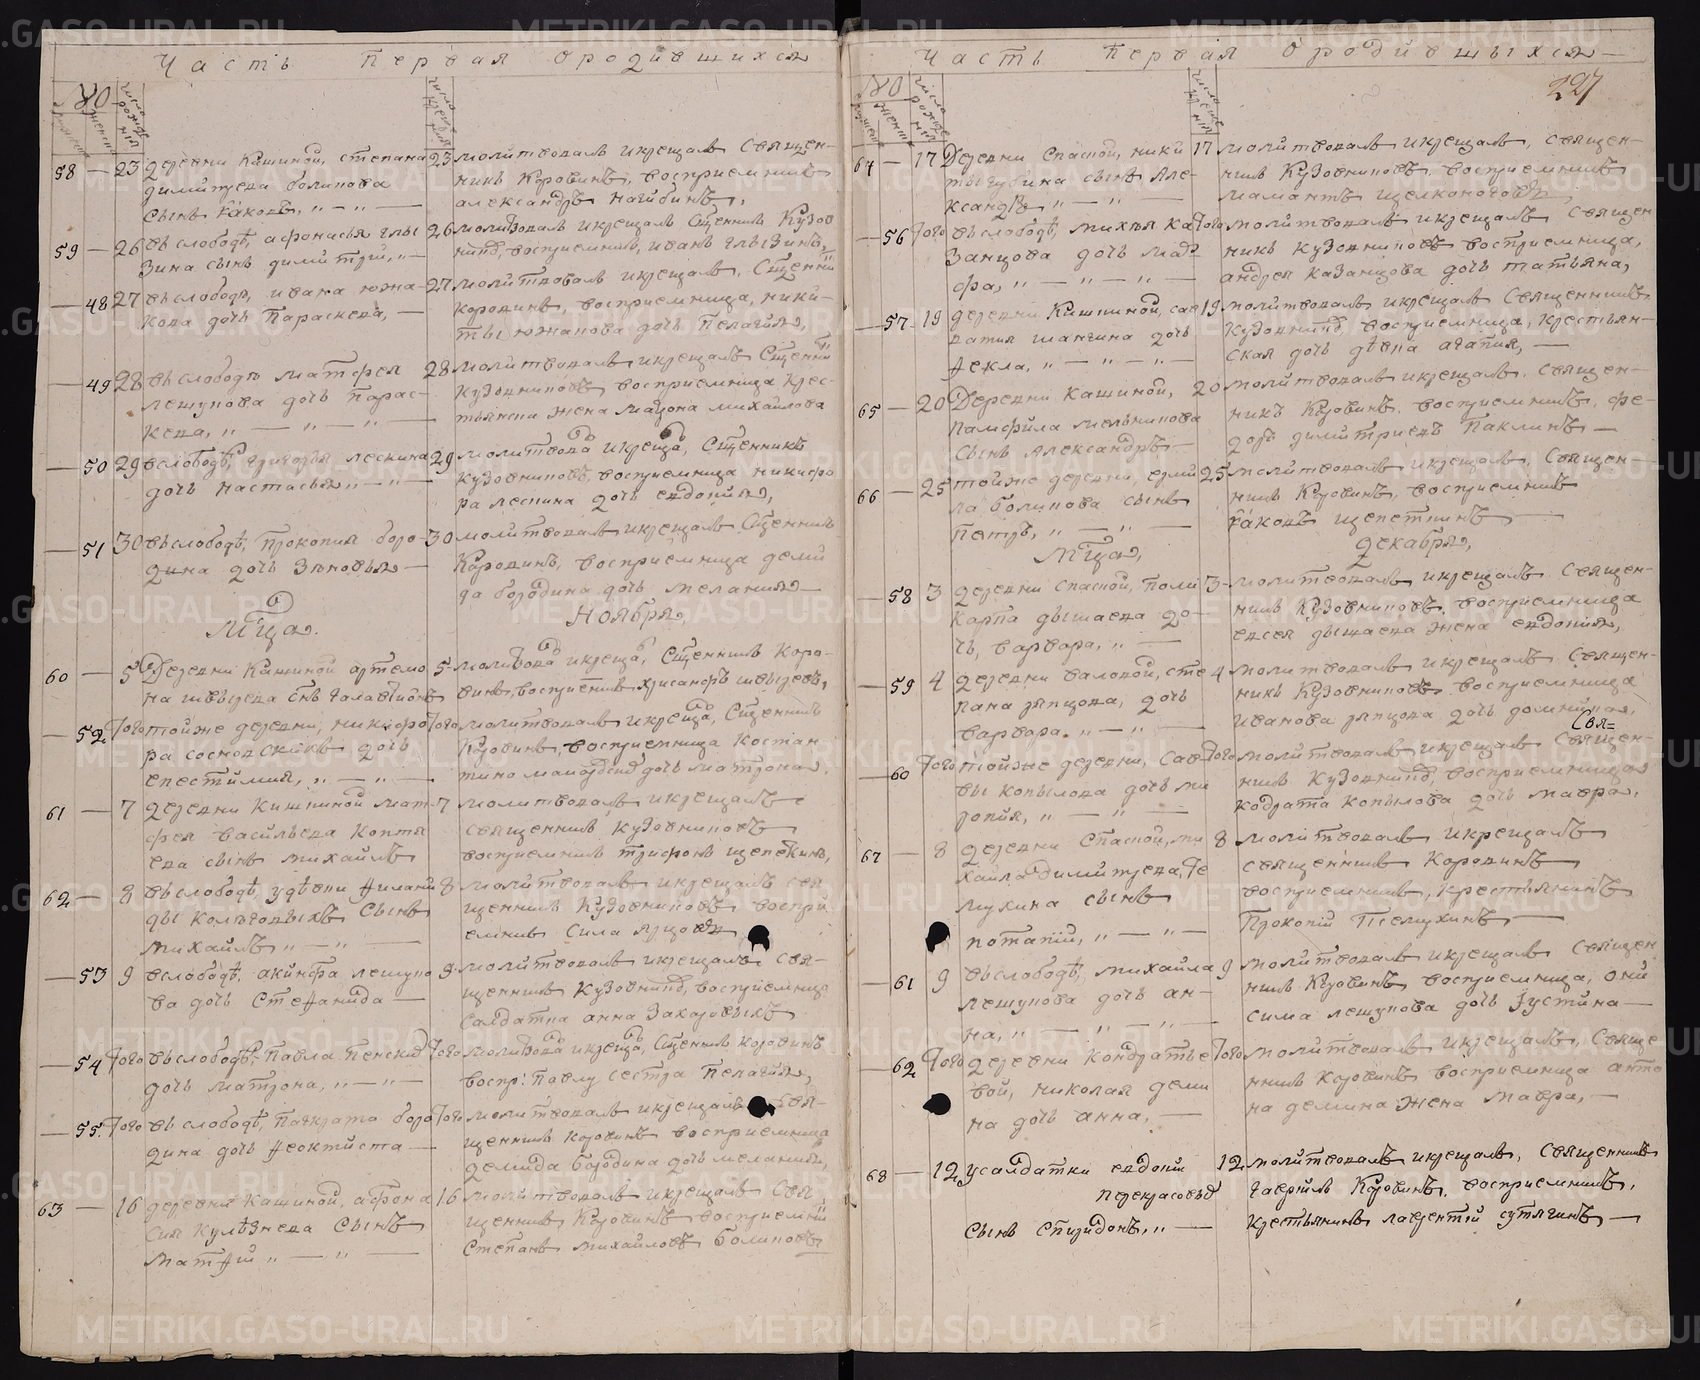 Часть Первая О родившихся
№
число рожденія
число крещенія
58 — 23 деревни Кашиной, степана
димитрева болинова
сынъ Іаковъ, „ — „ —
23 молитвовалъ икрещалъ Священ-
никъ Коровинъ, восприемникъ
александръ нагибинъ,
59 — 26 въслободѣ, афонасья глы
зина сынъ димитрій, „ —
26 молитвовалъ икрещалъ Сщенникъ Кузов
восприемникъ, иванъ глызинъ,
— 48 27 въслободѣ, ивана южа-
кова дочь Параскева, —
27 молитвовалъ икрещалъ, Сщенни
Коровинъ, восприемница, ники-
ты южакова дочь Пелагия,
— 49 28 въслободѣ матфея
лешукова дочь Парас-
кева, „ — „ — „ —
28 молитвовалъ икрещалъ Сщенни
Кузовниковъ восприемница крес-
тьянина жена михайлова
— 50 29 вслободѣ, григорья лескина
дочь настасья „ — „ —
29 молитвова икреща, Сщенникъ
Кузовниковъ, восприемница никифо
ра лескина дочь евдокия,
— 51 30 въслободѣ, Прокопия боро-
дина дочь Зѣновья —
30 молитвовалъ икрещалъ Сщенникъ
Коровинъ, восприемница деми
да бородина дочь мелания —
Мца. Ноября,
60 — 5 Деревни Кашиной артемо
на швырева снъ галактионъ
5 молитвова икреща, Сщенникъ Коро-
винъ, восприемникъ, хрисанфъ швыревъ,
— 52 Того тойже деревни, никифо
ра дочь
епестимия, „ — „ —
Того молитвовалъ икреща, Сщенникъ
Коровинъ, восприемница Костан
тина дочь матрона,
61 — 7 деревни Кишкиной мат-
фея васильева Коптя
ева сынъ михаилъ
7 молитвовалъ икрещалъ
священникъ, Кузовниковъ
восприемникъ трифонъ щепеткинъ,
62 — 8 въслободѣ, удѣвки
сынъ
михаилъ „ — „ —
8 молитвовалъ икрещалъ свя
щенникъ Кузовниковъ восприи
емникъ сила ярцовъ
— 53 9 вслободѣ, акинфа лешуко
ва дочь Стефанида —
9 молитвовалъ икрещалъ свя-
щенникъ Кузовнико, восприемница
салдатка анна Захаровыхъ
— 54 Того въслободѣ, Павла Пенских
дочь матрона, „ — „ —
Того молитвова икреща, Сщенникъ Коровинъ
воспр: Павлу сестра Пелагия,
— 55 Того въслободѣ, Панкрата боро
дина дочь Феоктиста —
Того молитвовалъ икрещалъ Свя-
щенникъ Коровинъ восприемница
демида бородина дочь мелания,
63 — 16 деревни Кашиной, афона
сия Кулѣзнева сынъ
Матѳій „ — „ —
16 молитвовалъ икрещалъ Свя
щенникъ Коровинъ восприемни
Степанъ михайловъ болиновъ
Часть Первая О родившыхся —
297
№
число рожденія
число крещенія
64 — 17 Деревни Спаской, ники
ты губина сынъ Але-
ксандръ „ — „ —
17 молитвовалъ икрещалъ, Священ-
никъ Кузовниковъ, восприемникъ
мамантъ щелконоговъ
— 56 Того въслободѣ, михѣя Ка
занцова дочь Мар
фа, „ — „ — „ —
Того молитвовалъ икрещалъ Священ
никъ Кузовниковъ восприемница,
андрея Казанцова дочь татьяна,
— 57 19 деревни Кишкиной, сав
ватия шангина дочь
Ѳекла, „ — „ — „ —
19 молитвовалъ икрещалъ Священникъ
Кузовнико, восприемница, крестьян-
ская дочь дѣвка агапия, —
65 — 20 Деревни Кашиной,
Памфила мельникова
сынъ Александръ —
20 молитвовалъ икрещалъ, Священ-
никъ Коровинъ, восприемникъ, фе-
доръ димитриевъ Паклинъ —
66 — 25 тойже деревни, ерми
ла болинова сынъ
Петръ, „ — „ —
25 молитвовалъ икрещалъ, Священ-
никъ Коровинъ, восприемникъ
Іаковъ щепеткинъ —
Мца, декабря,
— 58 3 деревни Спаской, Поли
карпа дышаева до-
чь, варвара, „ —
3 молитвовалъ икрещалъ Священ-
никъ Кузовниковъ, восприемница
евсея дышаева жена евдокия,
— 59 4 деревни валовой, сте
пана рѣпцова, дочь
варвара. „ — „ —
4 молитвовалъ икрещалъ, Священ-
никъ Кузовниковъ восприемница
иванова рѣпцова дочь домникая,
Свя=
— 60 Того тойже деревни, Сав
вы копылова дочь
„ — „ —
Того молитвовалъ икрещалъ Священ-
никъ Кузовнико, восприемница
кодрата копылова дочь мавра,
67 — 8 деревни Спаской, ми
хайла димитрева, Те
мухина сынъ
потапій, „ — „ —
8 молитвовалъ икрещалъ
священникъ Коровинъ
восприемникъ, крестьянинъ
Прокопій Темухинъ —
— 61 9 въслободѣ, михайла
лешукова дочь ан-
на, „ — „ — „ —
9 молитвовалъ икрещалъ Священ
никъ Коровинъ восприемница, они
сима лешукова дочь Іустина —
— 62 Того деревни Кондратье
вой, николая деми
на дочь анна, —
Того молитвовалъ икрещалъ, Свяще
нникъ Коровинъ восприемница анто
на демина жена мавра, —
68 — 12 усалдатки евдокии
Некрасовых
сынъ спиридонъ, „ —
12 молитвовалъ икрещалъ, Священникъ
гавриилъ Коровинъ, восприемникъ,
крестьянинъ лаврентій сутягинъ —
METRIKI.GASO-URAL.RU